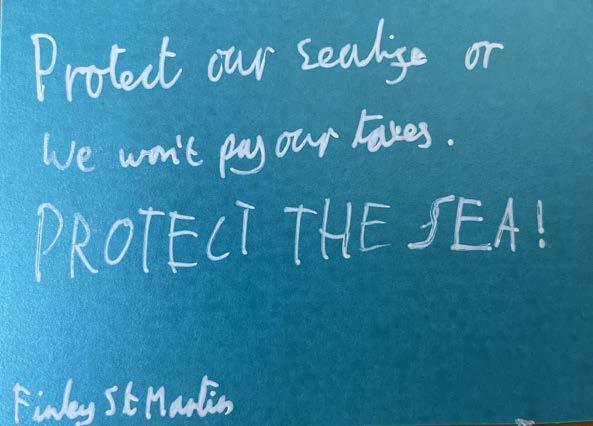 Protect our sealife or
We won't pay our taxes.
PROTECT THE SEA!
Finley St Martin